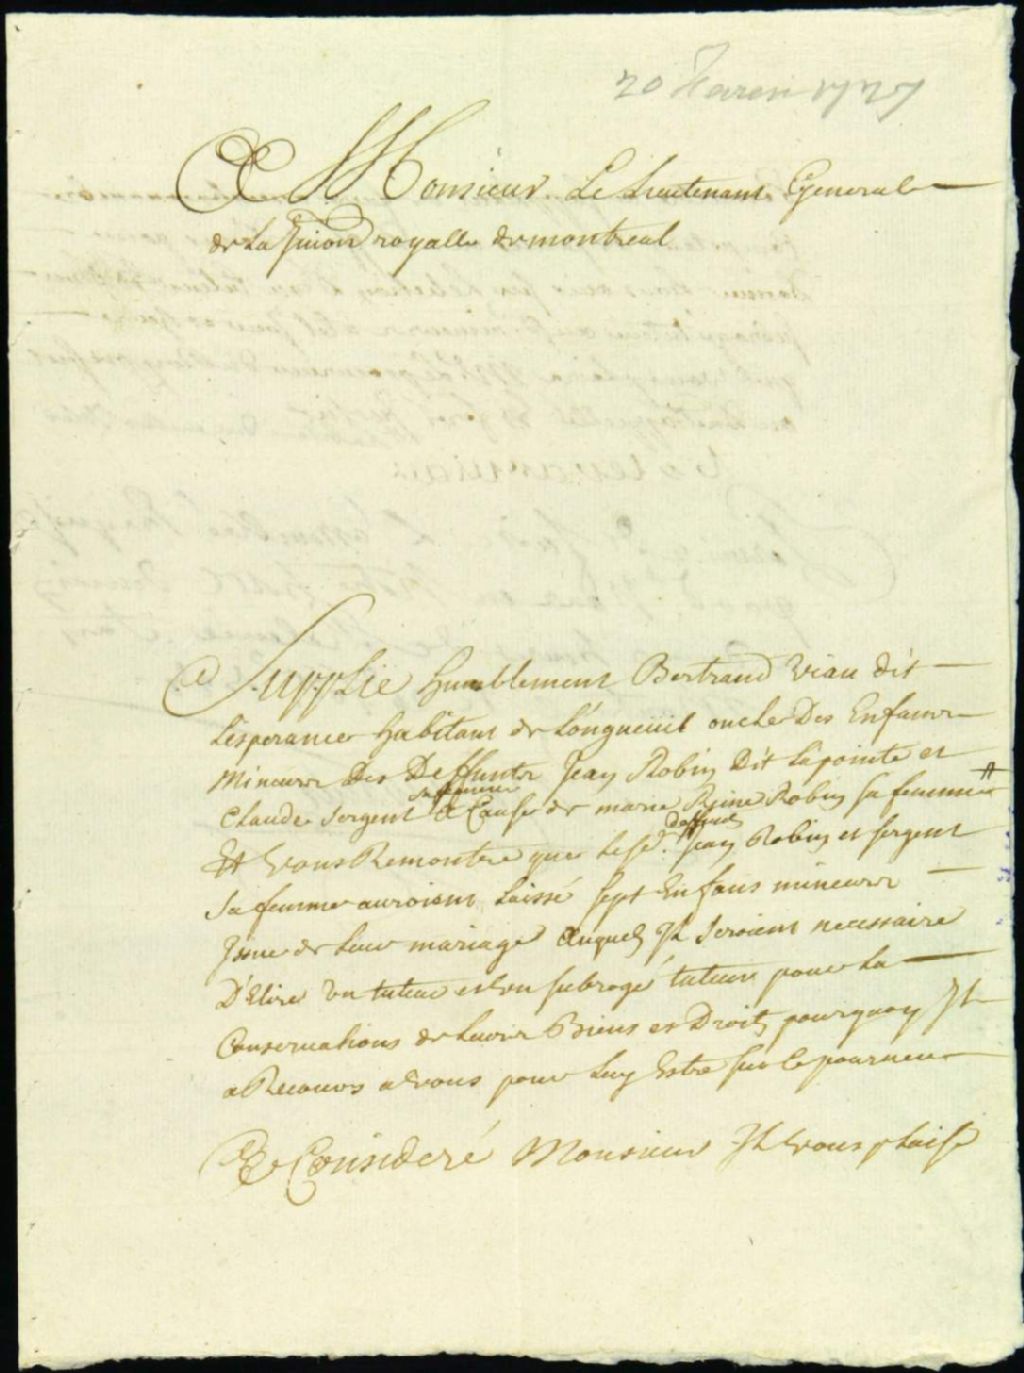 20 1727
A Monsieur Le Lieutenant General
de La Jurion royalle de montreal
Supplie humblement Bertrand Viau dit
Lesperance habitant de Longueüil oncle Des Enfans
Mineurs Des Deffunts Jean Robin Dit Lapointe et
Claude Sergent sa femme a Cause de marie Reine Robin sa femme
Et vous Remontre que led. deffunt Jean Robin et sergent
sa femme auroient Laissé sept Enfans mineurs
Issue de Leur mariage Auquels Il seroient necessaire
D'Elire un tuteur et un subrogé tuteur pour La
Conservations de Leurs Biens et Droits pourquoy Il
a Recours a vous pour Luy Estre sur Ce pourveu
Ce Consideré Monsieur Il vous plaise